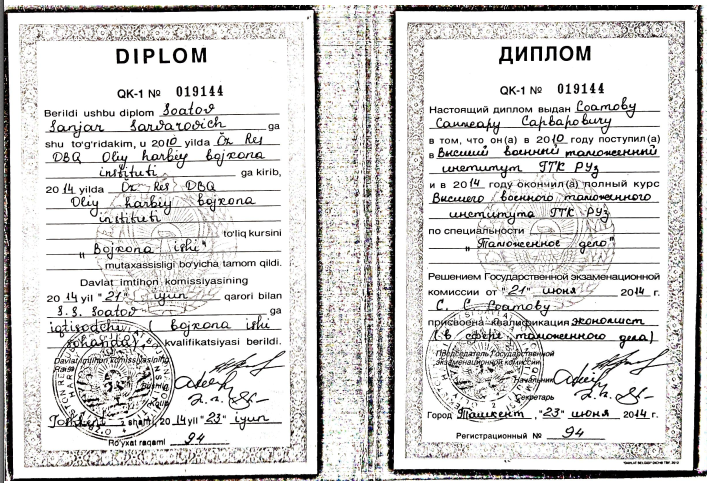 DIPLOM
QK-1 № 019144
Berildi ushbu diplom Soatov
Sanjar Sarvarovich ga
shu to'g'ridakim, u 2010 yilda Oz Res
DBQ Oliy harbiy bojxona
instituti ga kirib,
2014 yilda Oz Res DBQ
Oliy harbiy bojxona
instituti
to'liq kursini
"Bojxona ishi"
mutaxassisligi bo'yicha tamom qildi.
Davlat imtihon komissiyasining
2014 yil "21" iyun qarori bilan
S.S. Soatov ga
iqtisodchi (bojxona ishi
sohasida) kvalifikatsiyasi berildi.
Davlat imtihon komissiyasining
Raisi
Toshkent shahri, 2014 yil "23" iyun
Ro'yxat raqami 94
ДИПЛОМ
QK-1 № 019144
Настоящий диплом выдан Соатову
Санжару Сарваровичу
в том, что он(а) в 2010 году поступил(а)
в Высший военный таможенный
институт ГТК РУз
и в 2014 году окончил(а) полный курс
Высшего военного таможенного
института ГТК РУз
по специальности
"Таможенное дело"
Решением Государственной экзаменационной
комиссии от "21" июня 2014 г.
С. С. Соатову
присвоена квалификация экономист
(в сфере таможенного дела)
Председатель Государственной
экзаменационной комиссии
Начальник
Секретарь
Город Ташкент, "23" июня 2014 г.
Регистрационный № 94